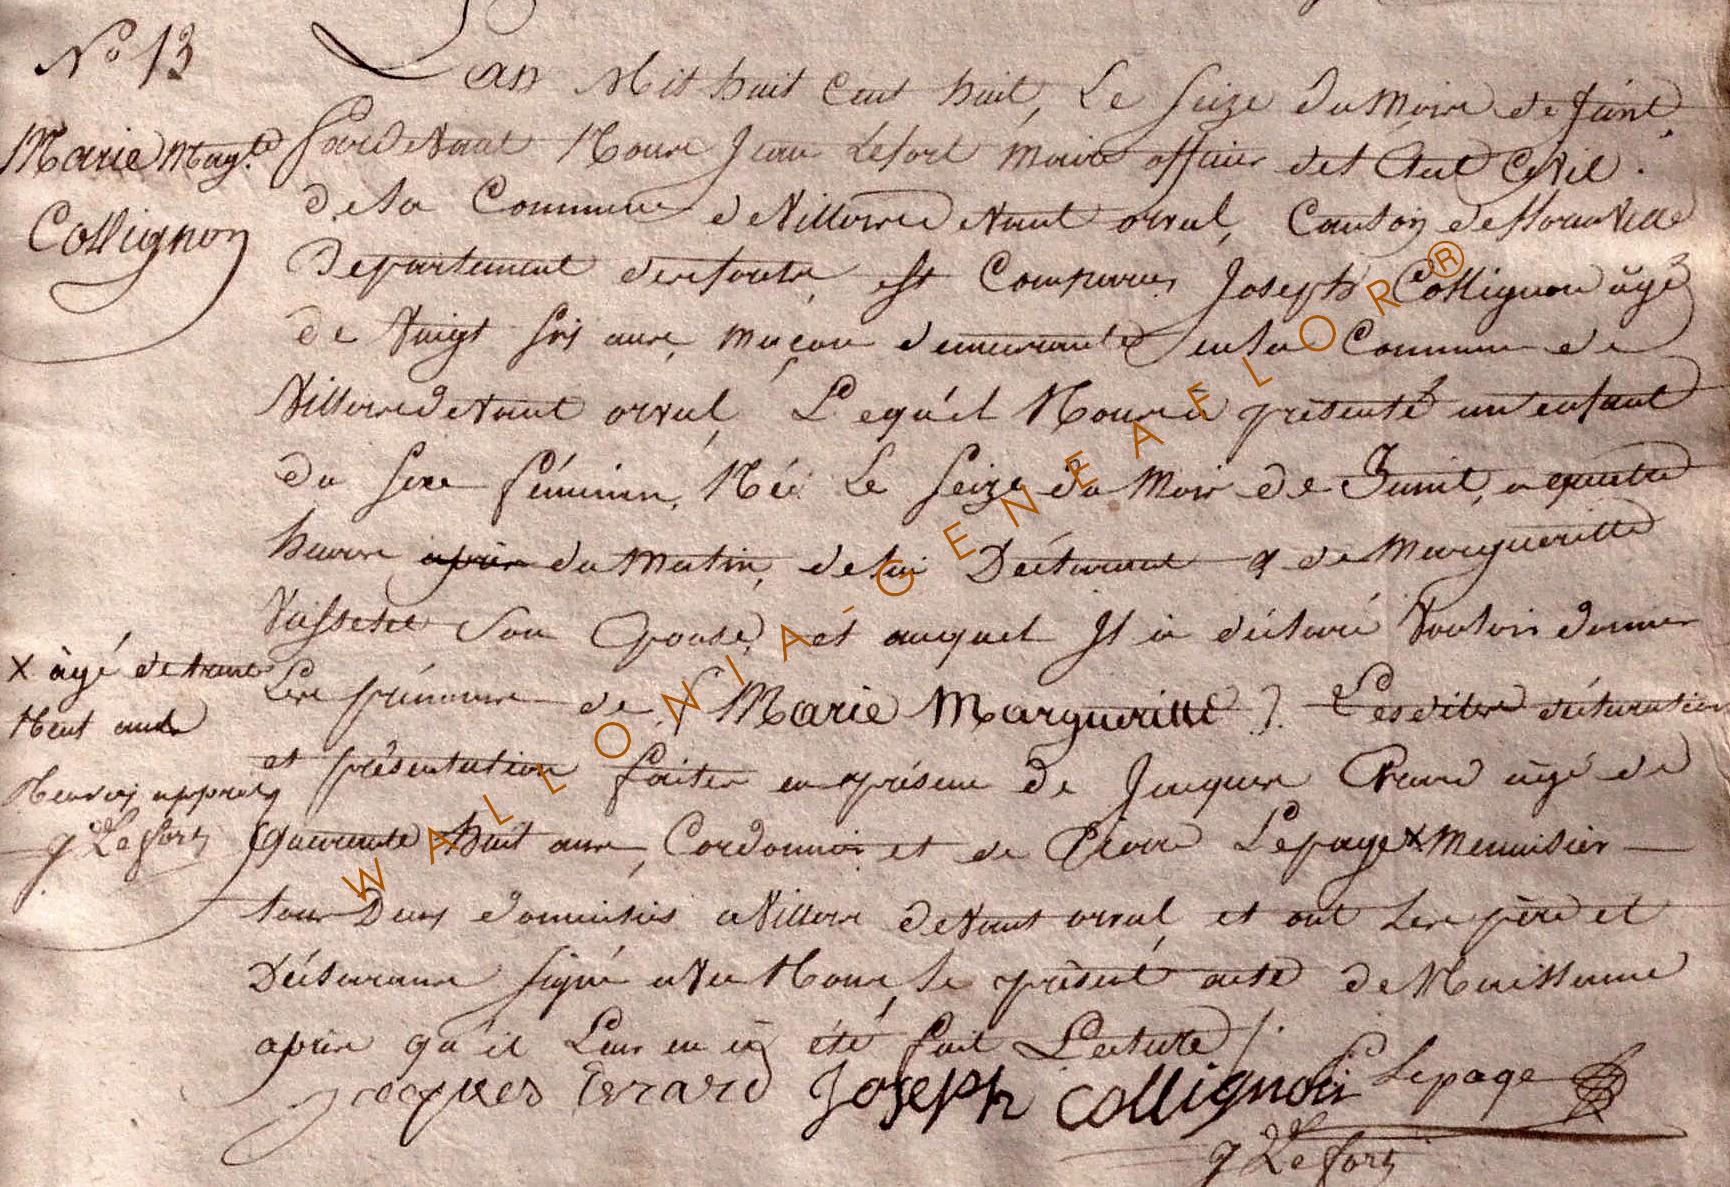 N° 13
Marie Mag.te
Collignon
L'an Mil huit Cent huit, Le Seize du Mois de Juint,
Pardevant Nous Jean Lefort maire officier del État Civil
de la Commune de Villers devant orval, Canton de florenville
Departement des forets, est Comparus Joseph Collignon âgé
de Vingt six ans, maçon demeurante en la Commune de
Villers devant orval, Lequ'el Nous à présenté un enfant
du sexe féminin, Née Le Seize du Mois de Juint, a quatre
heures après du Matin, de lui Déclarant & de Margueritte
son Epouse, et auquel Il a déclaré Vouloir donner
Les prénoms de (Marie Margueritte). Lesdites déclaration
et présentation faites en présence de Jacques Erard âgé de
quarante huit ans, Cordonnier et de Pierre Lepage X Menuisier
tous Deux domiciliés a Villers devant orval, et ont Les père et
Déclarans signé avec Nous, le présent acte de Naissance
après qu'il Leur en à été fait Lecture /.
X âgé de trente
Neuf ans
Renvoi approuvé
J Lefort
Jacques Erard Joseph Collignon Lepage
J Lefort
WALLONIA-GENEAFLOR®